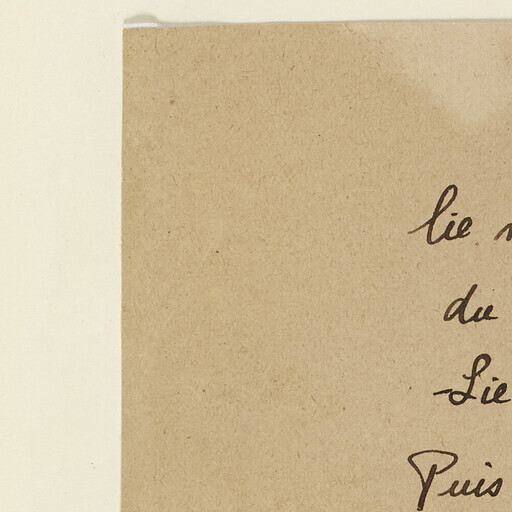 lie
du
-Lie
Puis